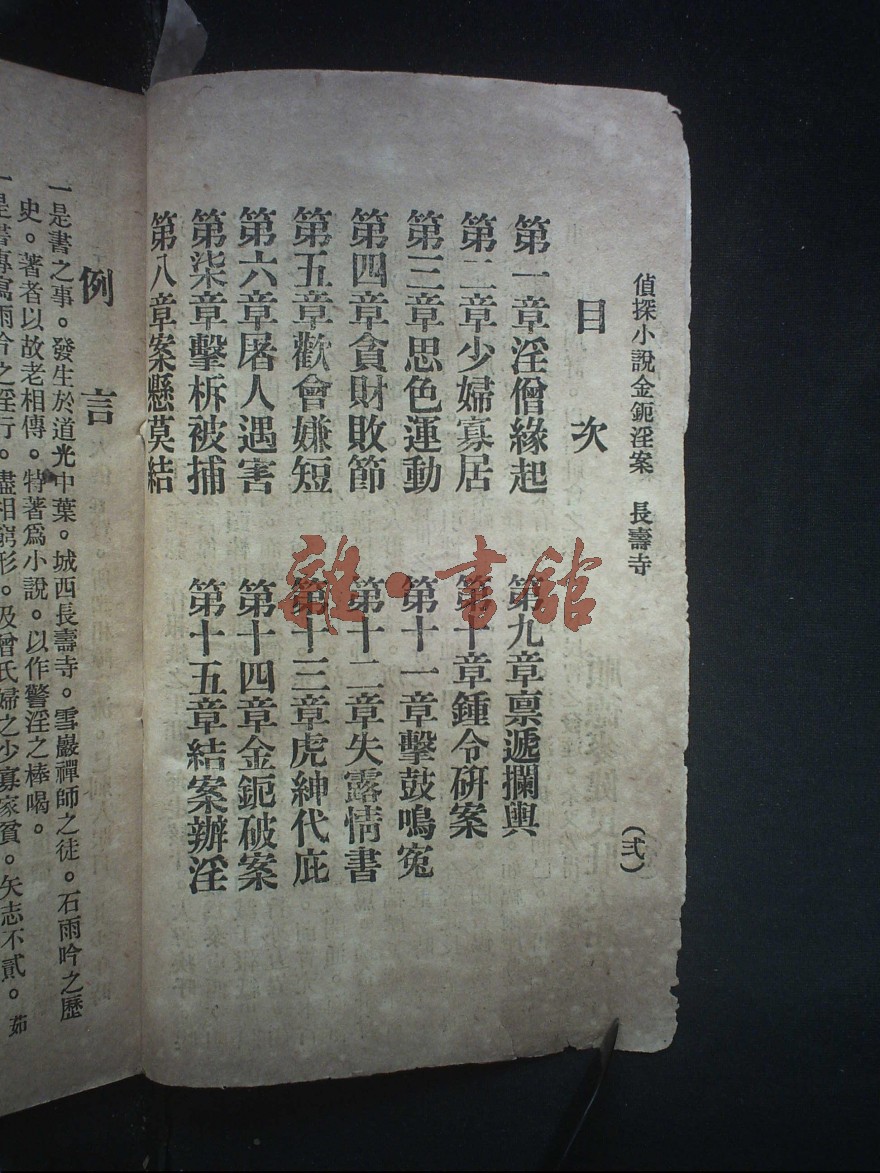 偵探小說金鈪淫案　長壽寺
（弍）
目次
第一章淫僧緣起
第二章少婦寡居
第三章思色運動
第四章貪財敗節
第五章歡會嫌短
第六章屠人遇害
第柒章擊柝被捕
第八章案懸莫結
第九章禀遞攔輿
第十章鍾令硏案
第十一章擊鼓鳴寃
第十二章失露情書
第十三章虎紳代庇
第十四章金鈪破案
第十五章結案辦淫
例言
一是書之事。發生於道光中葉。城西長壽寺。雪巖禪師之徒。石雨吟之歷
史。著者以故老相傳。特著爲小說。以作警淫之棒喝。
一是書專寫雨吟之淫行。盡相窮形。及曾氏婦之少寡家貧。矢志不貳。茹
雜·書館